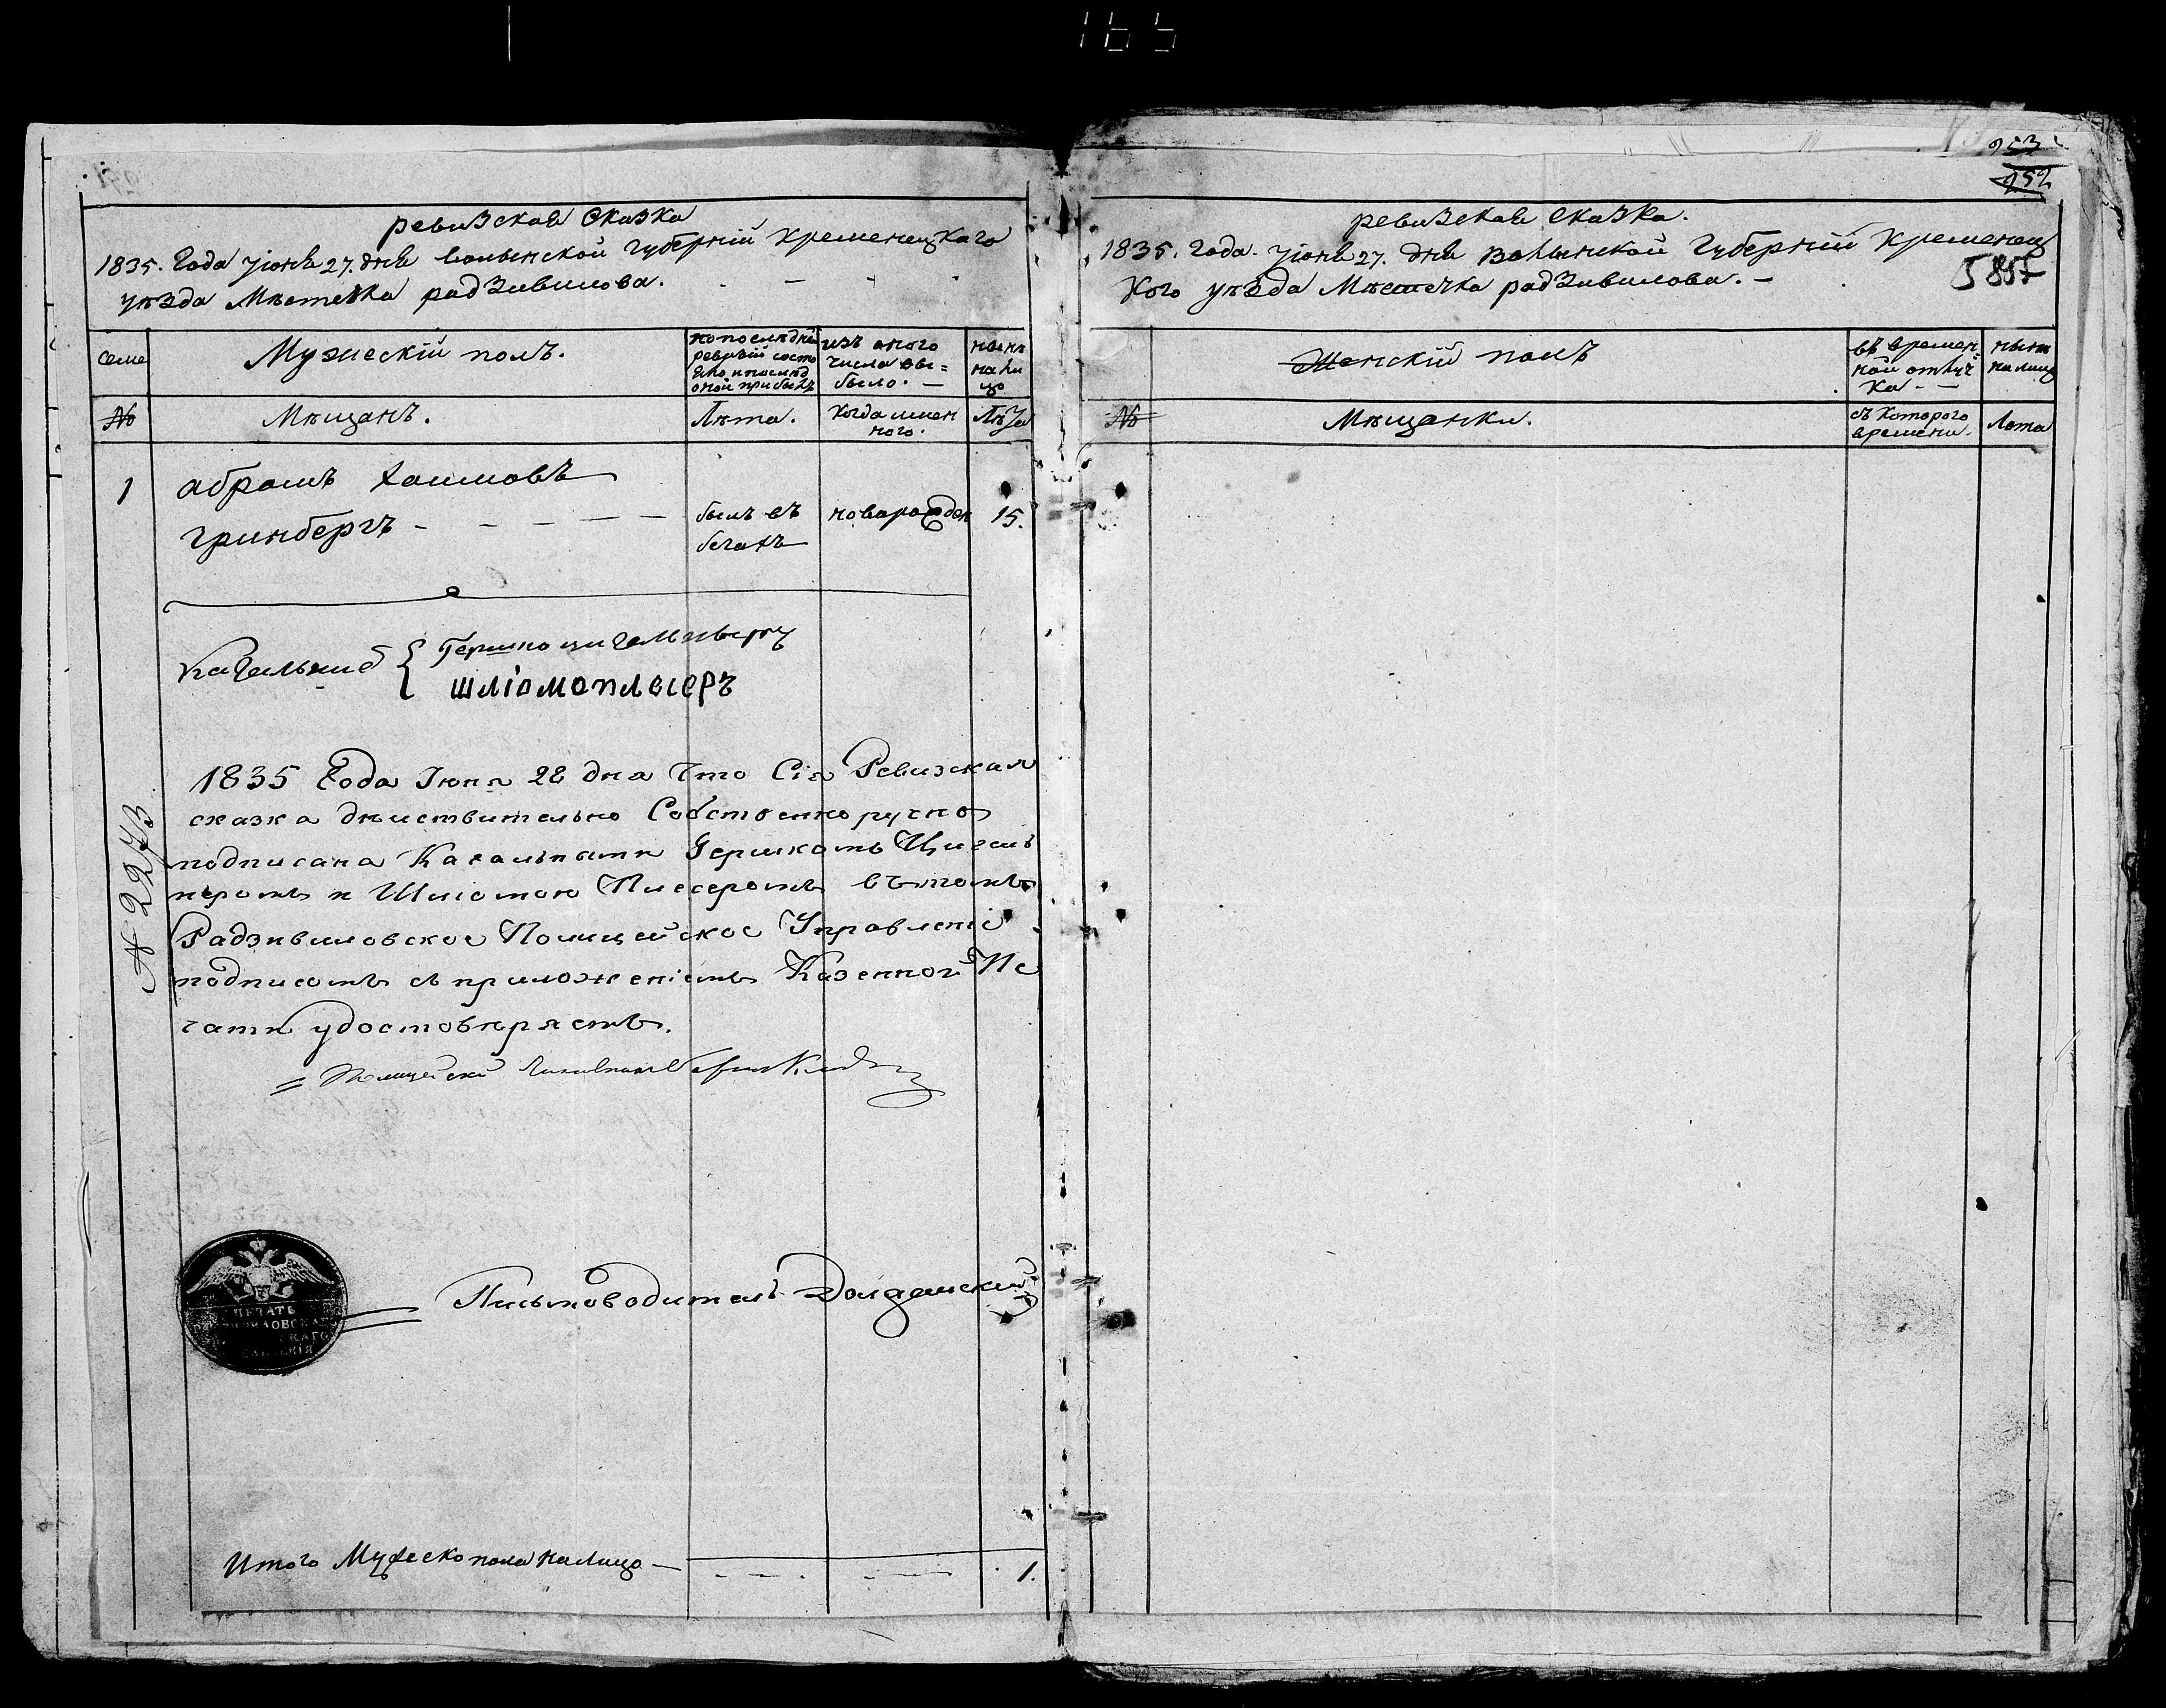 165
ревизская сказка
1835. Года Іюня 27. дня волынской губерніи кременецкаго
уѣзда Мѣстечка радзивилова. -
семе
Мужескій полъ.
по последней
ревизіи состо
яло и послѣ
оной прибылъ
изъ оного
числа вы=
было. -
нынѣ
нали
цо
№
Мѣщанъ.
Лѣта.
Когда имен
ного.
Лѣта
1
абрамъ хаимовъ
гринбергъ - - - - - -
былъ въ
бегахъ
новорожден
15.
Кагальные { Гершко
шліомоплесеръ
№ 2273
1835 Года Іюня 28 дня что Сія Ревизская
сказка дѣиствительно Собственноручно
подписана Кагальными Гершкомъ Цигель
неромъ и Шліомою Плесеромъ въ томъ
Радзивиловское Полицейское Управленіе
подписомъ съ приложеніемъ Казенной Пе
чати удостовѣряетъ.
= Полицейскій Чиновникъ
ПЕЧАТЬ
Письмоводитель
Итого Мужеско пола налицо - 1.
953
952
ревизская сказка.
1835. года. Іюня 27. дня волынской губерніи кременец
кого уѣзда Мѣстечка радзивилова. -
5857
Женскій полъ
въ времен
ной отлуч
ка - -
нынѣ
налицо
№
Мѣщанки.
съ которого
времени.
Лета